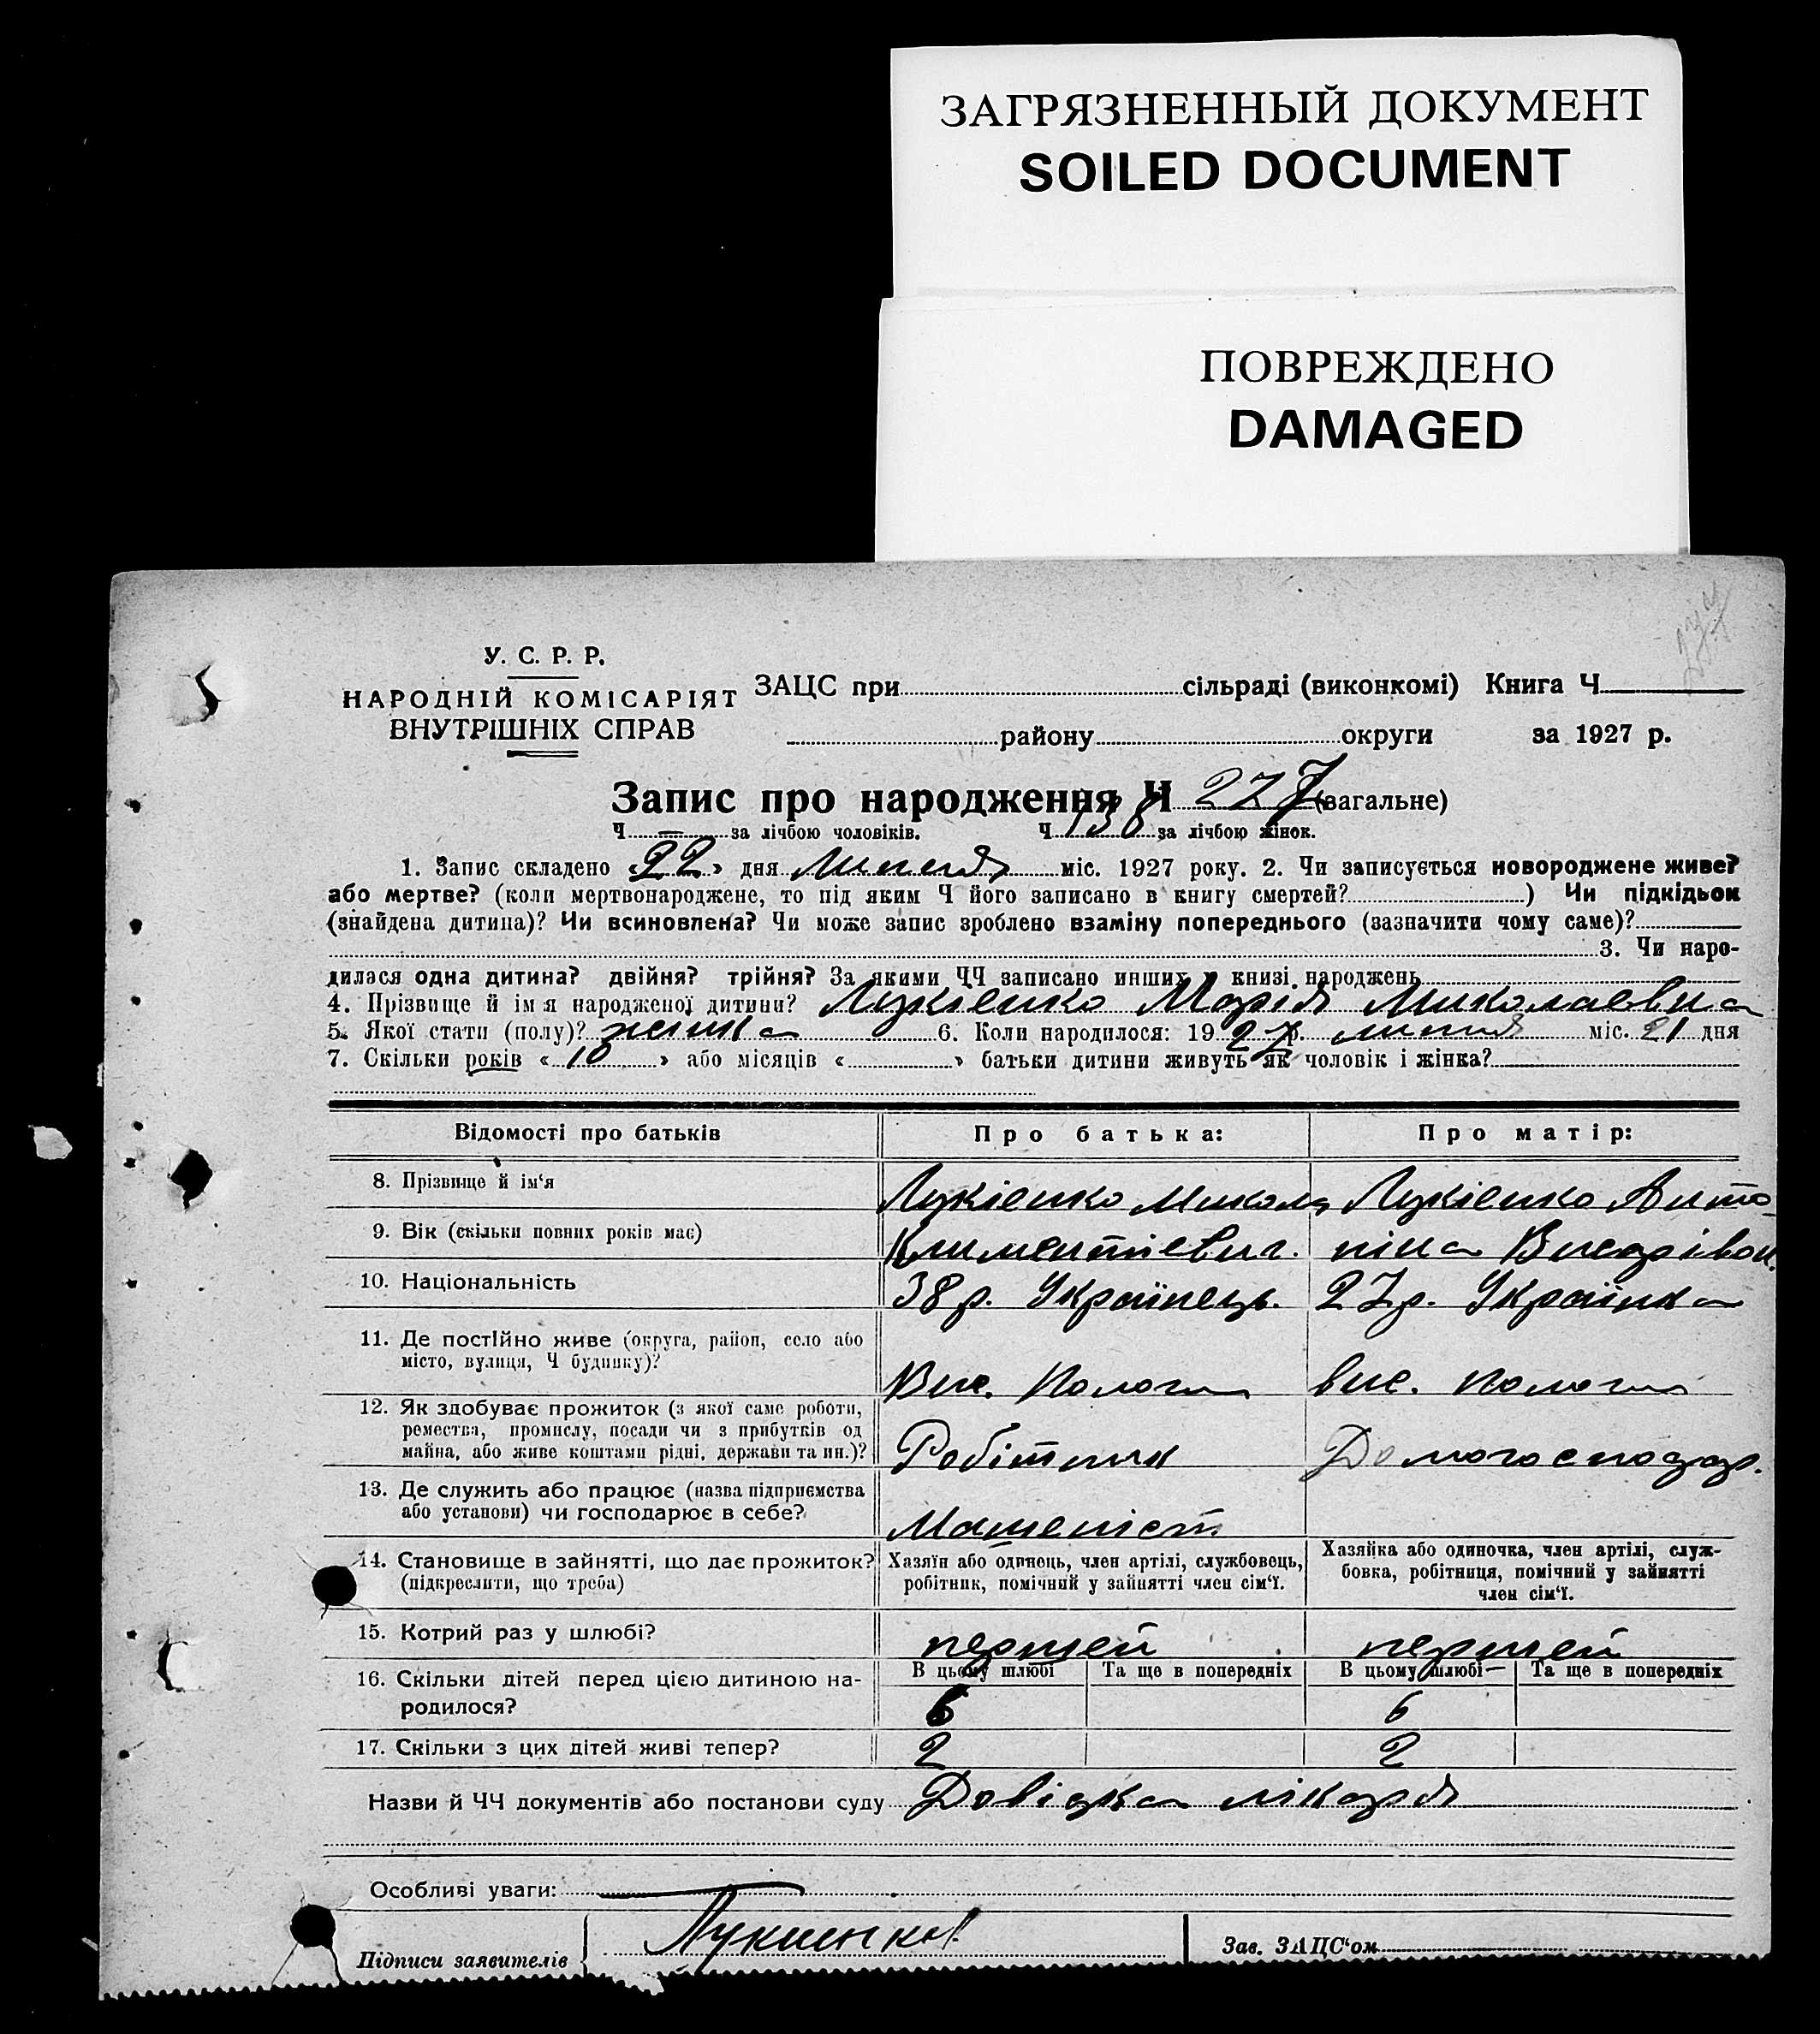 ЗАГРЯЗНЕННЫЙ ДОКУМЕНТ
SOILED DOCUMENT
ПОВРЕЖДЕНО
DAMAGED
У. С. Р. Р.
НАРОДНІЙ КОМІСАРІЯТ
ВНУТРІШНІХ СПРАВ
ЗАЦС при сільраді (виконкомі) Книга Ч
району округи за 1927 р.
Запис про народження Ч 227 (загальне)
Ч – за лічбою чоловіків. Ч 138 за лічбою жінок.
1. Запис складено «22» дня Липня міс. 1927 року. 2. Чи записується новороджене живе?
або мертве? (коли мертвонароджене, то під яким Ч його записано в книгу смертей? ) Чи підкідьок
(знайдена дитина)? Чи всиновлена? Чи може запис зроблено взаміну попереднього (зазначити чому саме)?
3. Чи наро-
дилася одна дитина? двійня? трійня? За якими ЧЧ записано инших у книзі народжень
4. Прізвище й ім'я народженої дитини? Лукієнко Марія Миколаєвна
5. Якої стати (полу)? жінка 6. Коли народилося: 1927 р. липня міс. 21 дня
7. Скільки років «10» або місяців « » батьки дитини живуть як чоловік і жінка?
Відомості про батьків Про батька: Про матір:
8. Прізвище й ім'я Лукієнко Микола Лукієнко Анто-
9. Вік (скільки повних років має) Климентієвич. ніна Висарівон.
10. Національність 38 р. Українець. 27 р. Українка
11. Де постійно живе (округа, район, село або
місто, вулиця, Ч будинку)? Вис. Пологи вис. Пологи
12. Як здобуває прожиток (з якої саме роботи,
ремества, промислу, посади чи з прибутків од
майна, або живе коштами рідні, держави та ин.)? Робітник Домогосподар.
13. Де служить або працює (назва підприємства
або установи) чи господарює в себе? Машеніст
14. Становище в зайнятті, що дає прожиток?
(підкреслити, що треба)
Хазяїн або одинець, член артілі, службовець,
робітник, помічний у зайнятті член сім'ї.
Хазяйка або одиночка, член артілі, служ-
бовка, робітниця, помічний у зайнятті
член сім'ї.
15. Котрий раз у шлюбі? першей першей
16. Скільки дітей перед цією дитиною на-
родилося?
В цьому шлюбі Та ще в попередніх В цьому шлюбі Та ще в попередніх
6 6
17. Скільки з цих дітей живі тепер? 2 2
Назви й ЧЧ документів або постанови суду Довідка лікаря
Особливі уваги:
Підписи заявителів Зав. ЗАЦС'ом